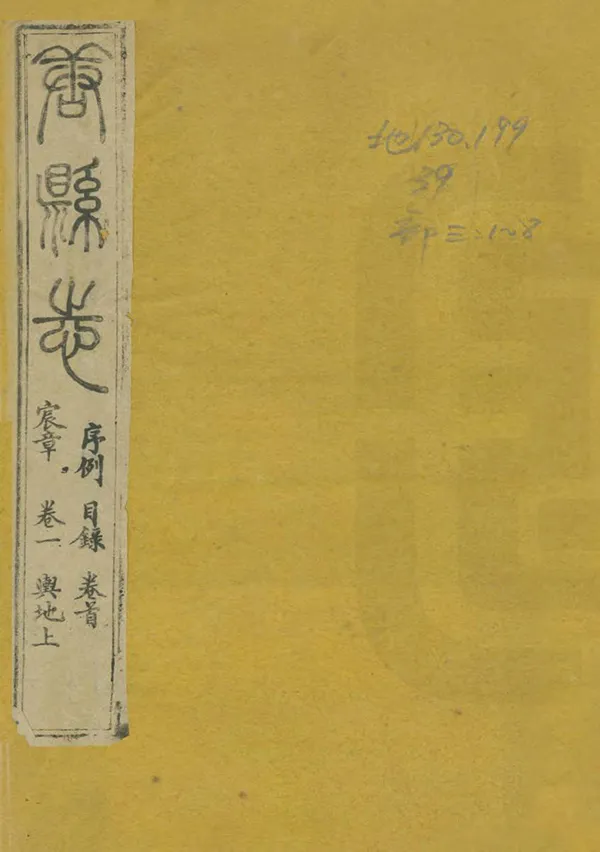 唐縣志
序例 目錄 卷首
宸章。 卷一 輿地上
地130.199
39
三:1~8